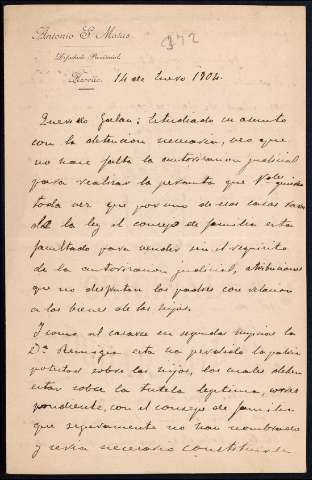 Antonio F. Matas
Diputado Provincial
372
14 de Enero 1904.
Querido Galan: Estudiado su asunto
con la detencion necesaria, veo que
no hace falta la autorizacion judicial
para realizar la permuta que Vdes
toda vez que por uno de esos casos
de la ley el consejo de familia esta
facultado para vender sin el requisito
de la autorizacion judicial, atribuciones
que no disfrutan los padres con relacion
a los bienes de los hijos.
Y como al casarse en segundas nupcias la
Dª Remigia esta ha perdido la patria
potestad sobre los hijos, los cuales deben
estar sobre la tutela legitima, corres
pondiente, con el consejo de familia
que seguramente no han nombrado
y seria necesario constituirle